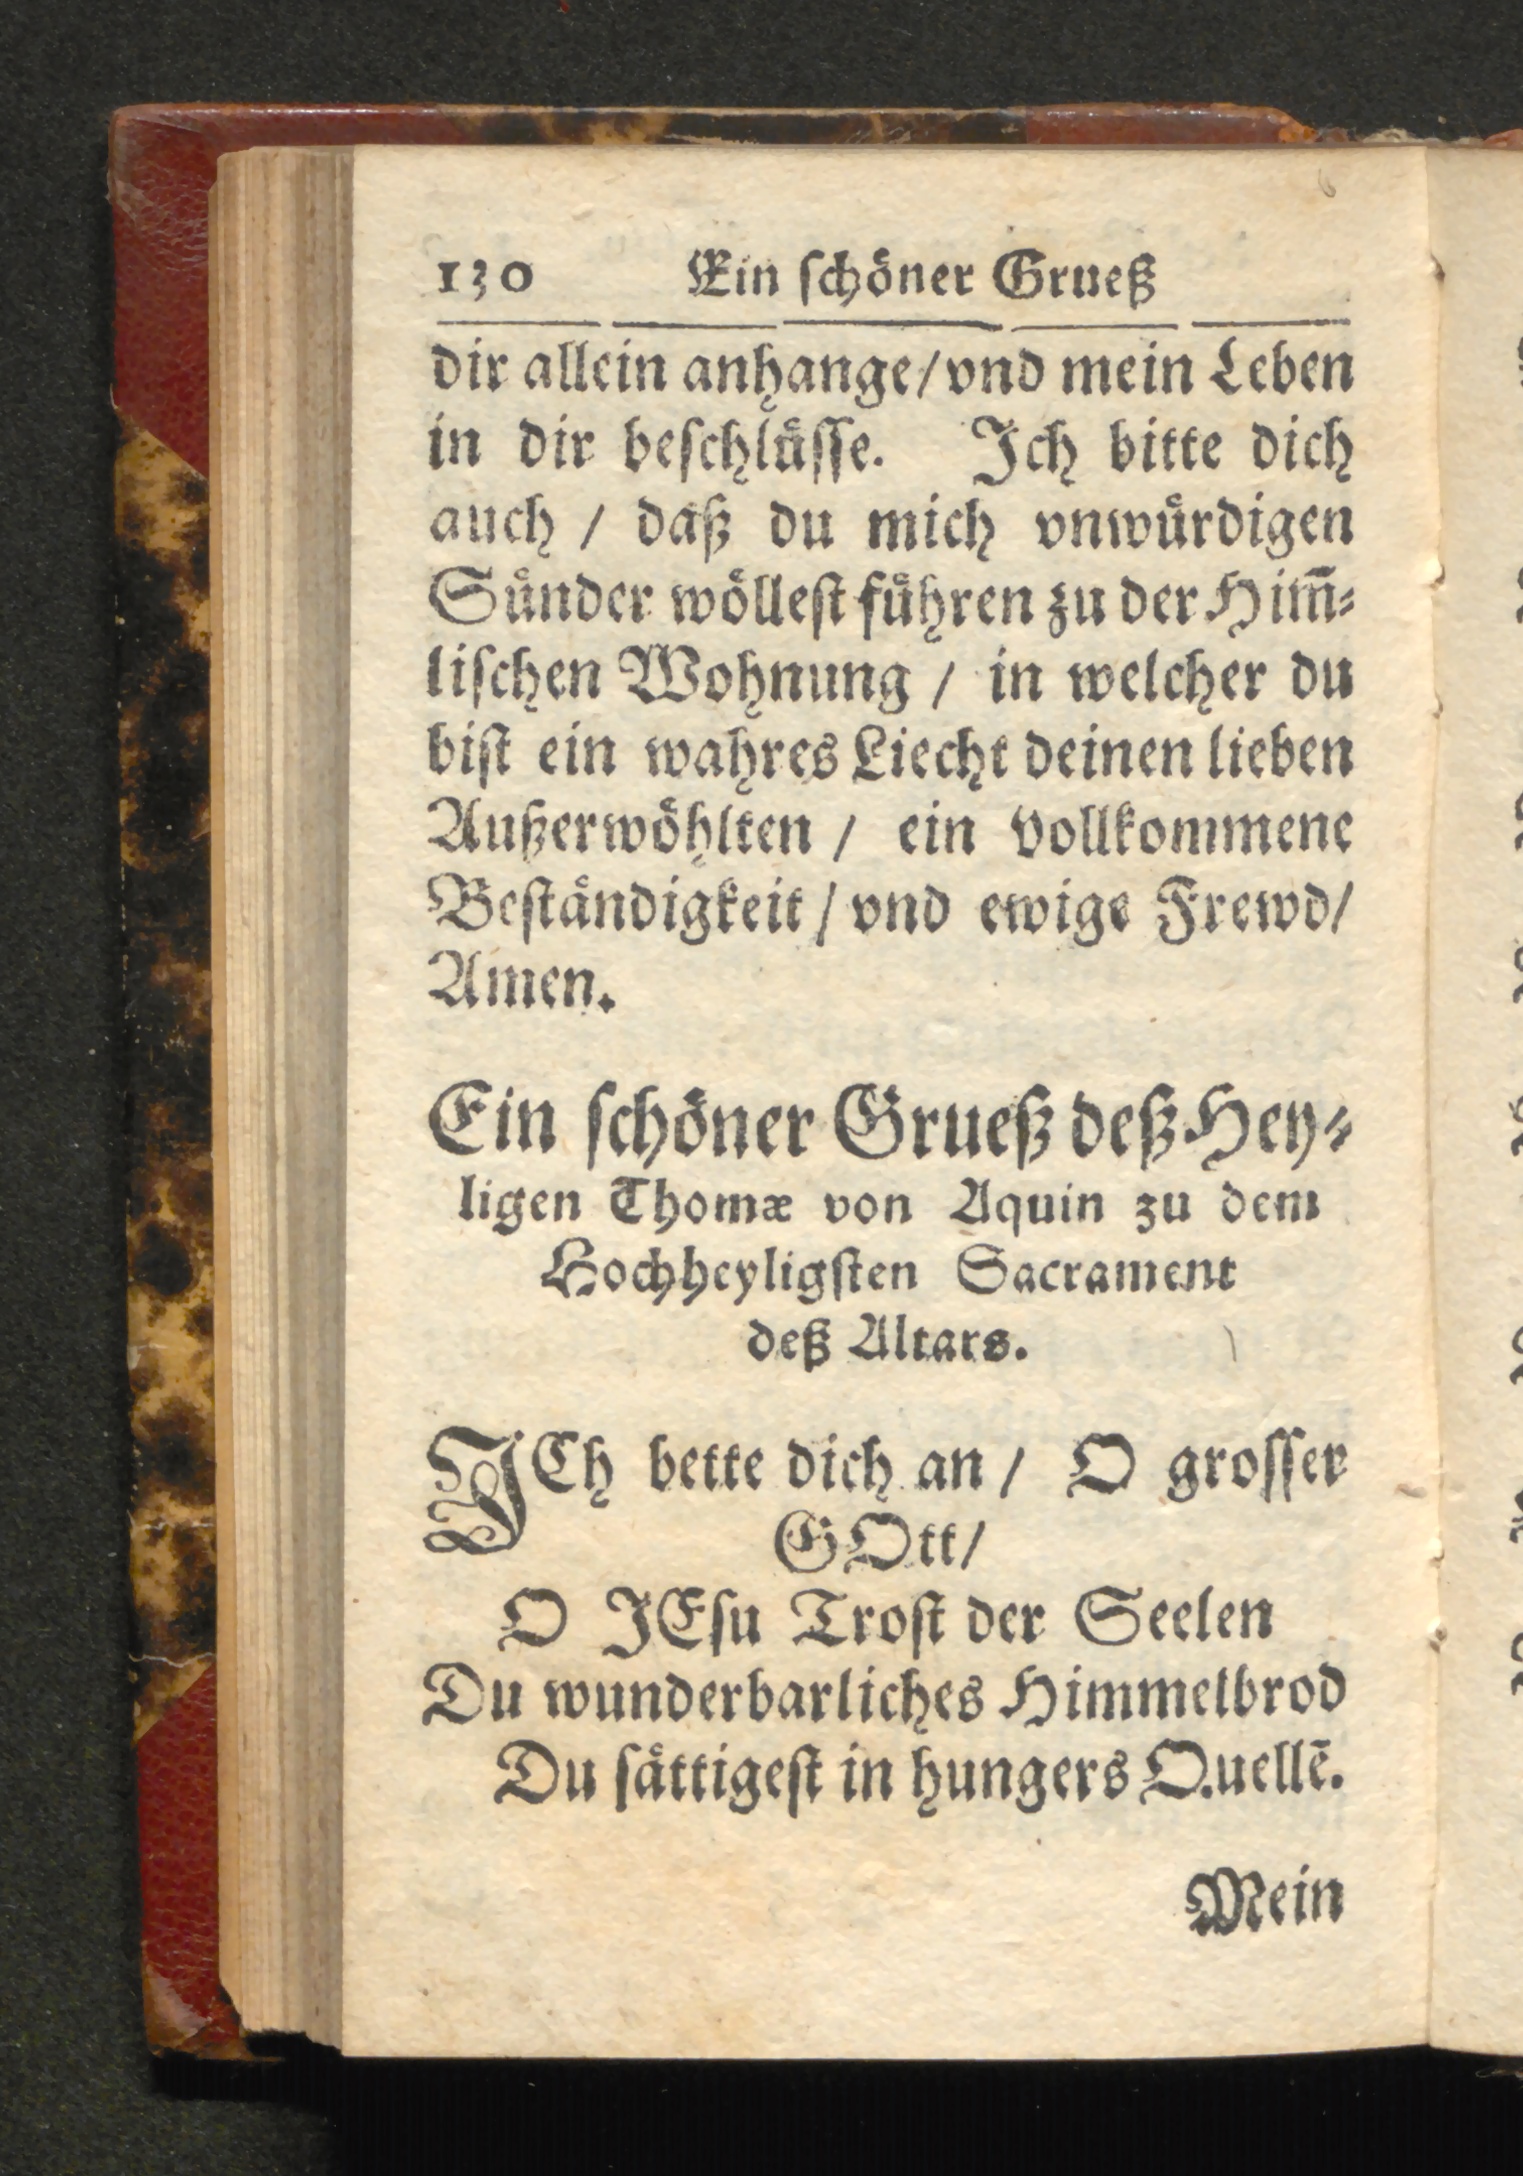 130 Ein ſchöner Grueß
dir allein anhange/vnd mein Leben
in dir beſchlüſſe. Ich bitte dich
auch / daß du mich vnwürdigen
Sünder wölleſt führen zu der Him̃-
liſchen Wohnung / in welcher du
biſt ein wahres Liecht deinen lieben
Außerwöhlten / ein vollkommene
Beſtändigkeit / vnd ewige Frewd/
Amen.
Ein ſchöner Grueß deß Hey-
ligen Thomæ von Aquin zu dem
Hochheyligſten Sacrament
deß Altars.
ICh bette dich an / O groſſer
GOtt/
O JEſu Troſt der Seelen
Du wunderbarliches Himmelbrod
Du ſättigeſt in hungers Quellē.
Mein